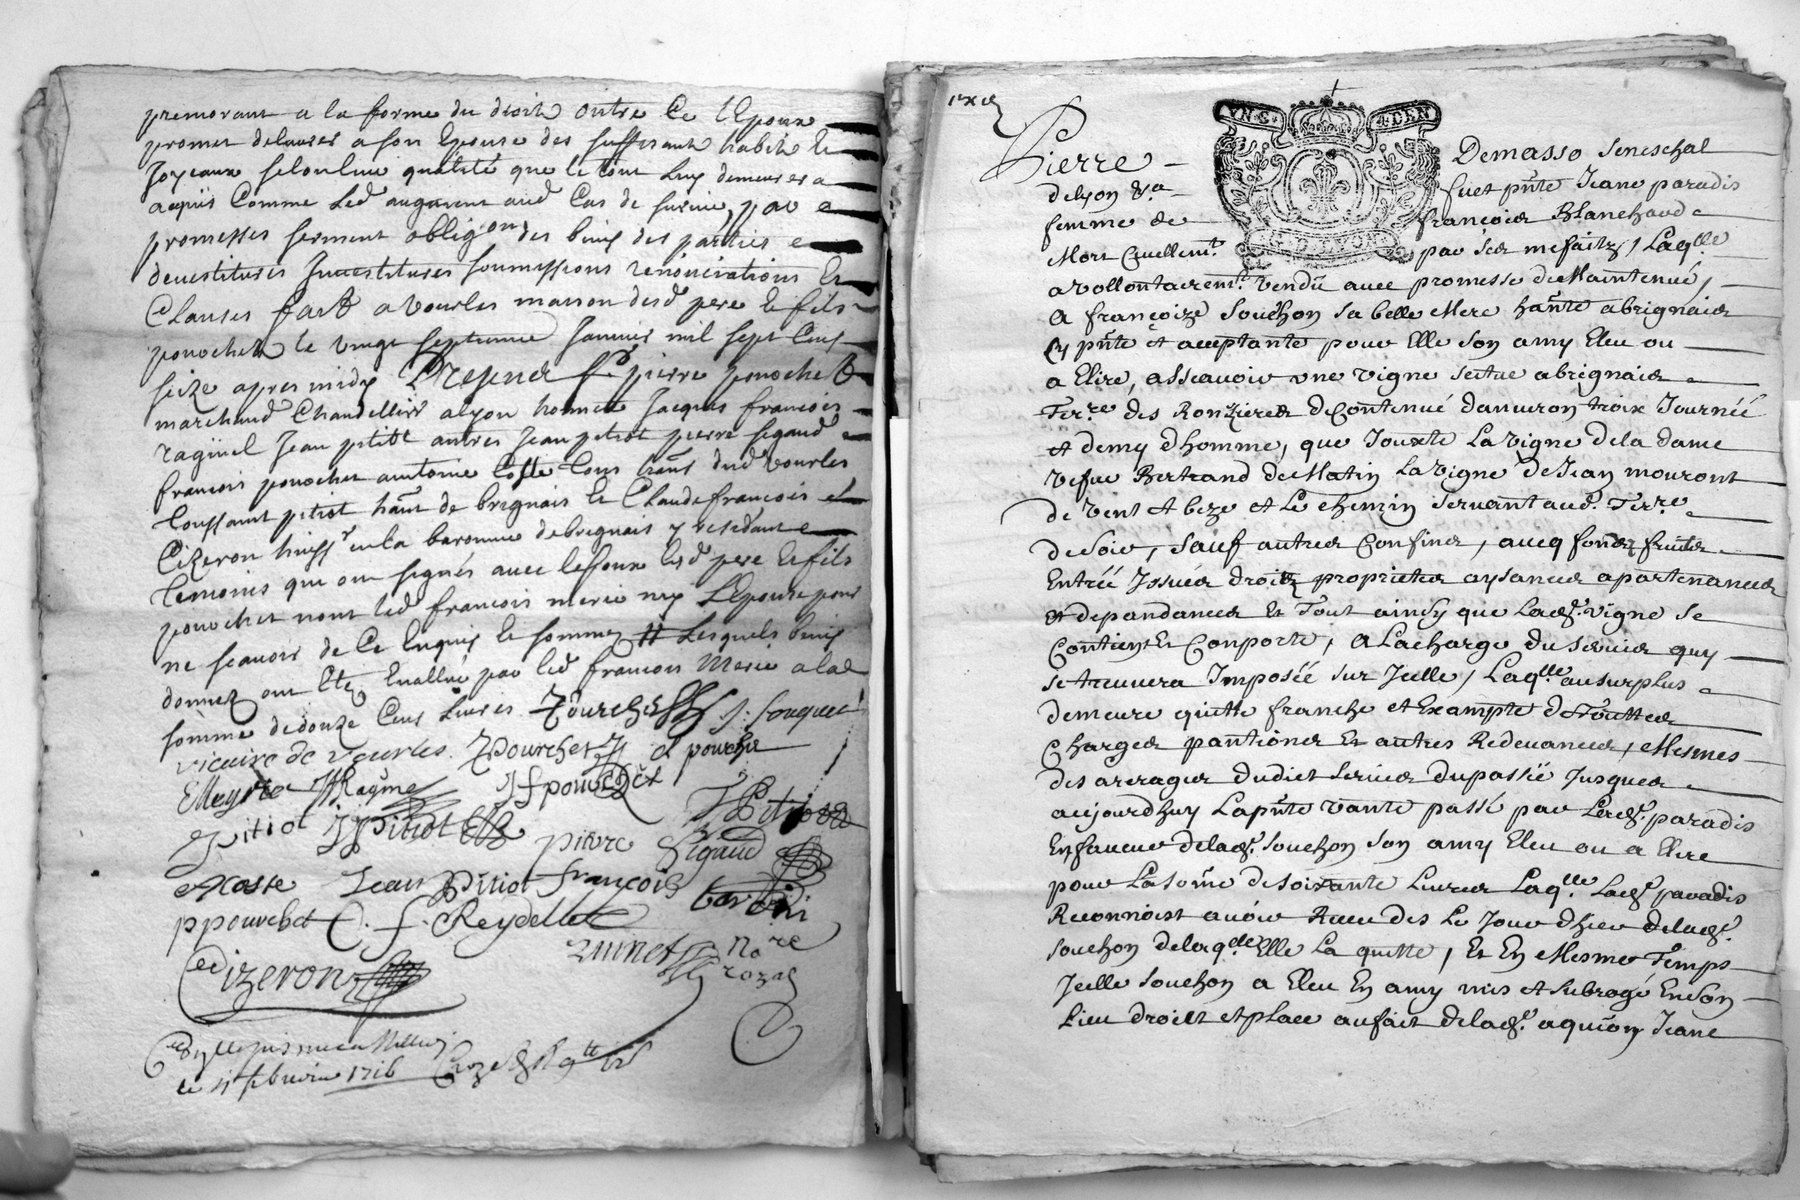 premorant a la forme du droit outre ce l'Epoux
promet de a son Epouse des suffisant habit et
Joyeaux selon leur qualité que le tout luy demeurera
aquis Comme led augment aud Cas de survie, par
promesses serment obligon des biens des parties
devestitures Investitures soumissions renonciations et
Clauses fait a vourles maison desd pere et fils
pourchet le vingt septieme Janvier mil sept Cens
seize apres midy pierre pourchet
marchand Chandellier a lyon Jacques francois
Jean pitiot autres Jean pitiot pierre sigaud
francois pourchet antoine Coste tous dud vourles
toussaint pitiot hant de brignais et Claude francois
Cizeron huissr en la baronnie de brignais y residant
temoins qui ont signés avec lesd pere et fils
pourchet nont led francois merie ny L'Epouse pour
ne scavoir de ce Enquis et sommez Lesquels biens
donnez ont Etez Evallué par led francois Merie a la
somme de douze Cens Livres Pourchet J. fouquet
vicaire de vourles Pourchet pourchet
pourchet
pitiot Pitiot Pitiot
pierre Sigaud
acoste Jean Pitiot françois
ppourchet C. f. Reydellet
Cizeron No re
rozal
le 11 febvrier 1716
VN.S. 4.DEN
Pierre Demasso seneschal
de Lyon fut pnte Jeane paradis
femme de françois Blanchard
Mort Civillemt par ses mefaitz, Laqlle
a vollontairemt vendü avec promesse de Maintenue,
a françoize Souchon sa belle Mere hante a brignais
Cy pnte et acceptante pour Elle son amy Eleu ou
a Elire, asseavoir une vigne scitue a brignais
Terre des Ronzieres de Contenué d'anviron troix Journée
et demy d'homme, que Jouxte La vigne de la dame
vefve Bertrand de Matin La vigne de Jean mouront
de vent et bize et Le chemin servant aud. Terre
de soir, sauf autres Confins, avecq fondz fruits
Entrée Issues droitz proprietes aysances apartenances
et depandances Et Tout ainsy que Lade. vigne se
Contient Et Conporte, a La charge du service quy
se trouvera Imposéé sur Jcelle, Laqlle au surplus
demeure quitte franche et Exampte de Touttes
charges pantions Et autres Redevances, Mesmes
des arerages dudict service du passé Jusques
aujourdhuy La pnte vante passé par Lade. paradis
En faveur de lade. souchon son amy Eleu ou a Elire
pour La some de soixante Livres Laqlle lade paradis
Reconnoist avoir Receu des Le Jour d'hier de lade.
souchon de laqlle Elle La quitte, Et En Mesme Temps
Jcelle souchon a Eleu En amy mis et subrogé En son
Lieu droict et place au fait de lade. aquion Jeane